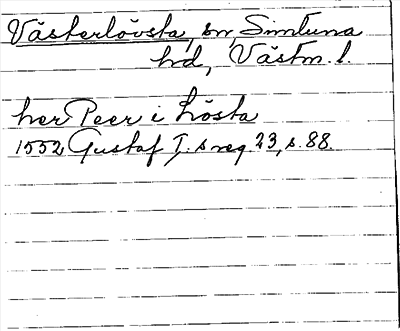 Västerlövsta, sn, Simtuna
hd, Västm. l.
her Peer i Lösta
1552 Gustaf I:s reg 23, s. 88.